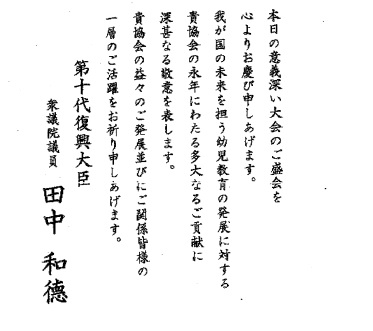 本日の意義深い大会のご盛会を
心よりお慶び申しあげます。
我が国の未来を担う幼児教育の発展に対する
貴協会の永年にわたる多大なるご貢献に
深甚なる敬意を表します。
貴協会の益々のご発展並びにご関係皆様の
一層のご活躍をお祈り申しあげます。
第十代復興大臣
衆議院議員
田中和德